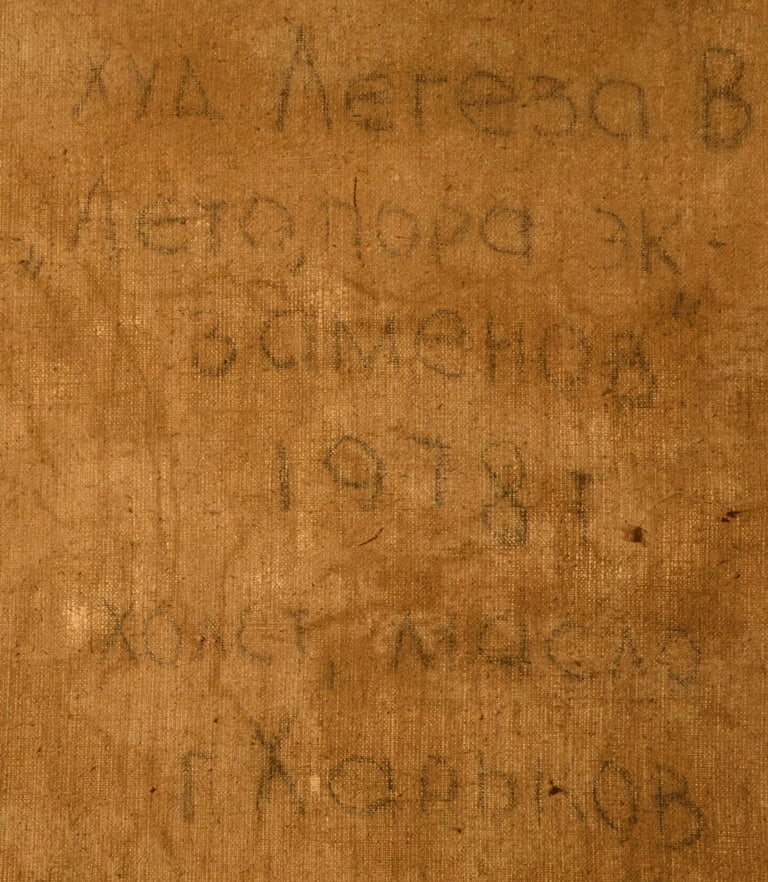 худ Легеза В
„Лето, пора эк-
заменов"
1978 г.
холст, масло
г Харьков